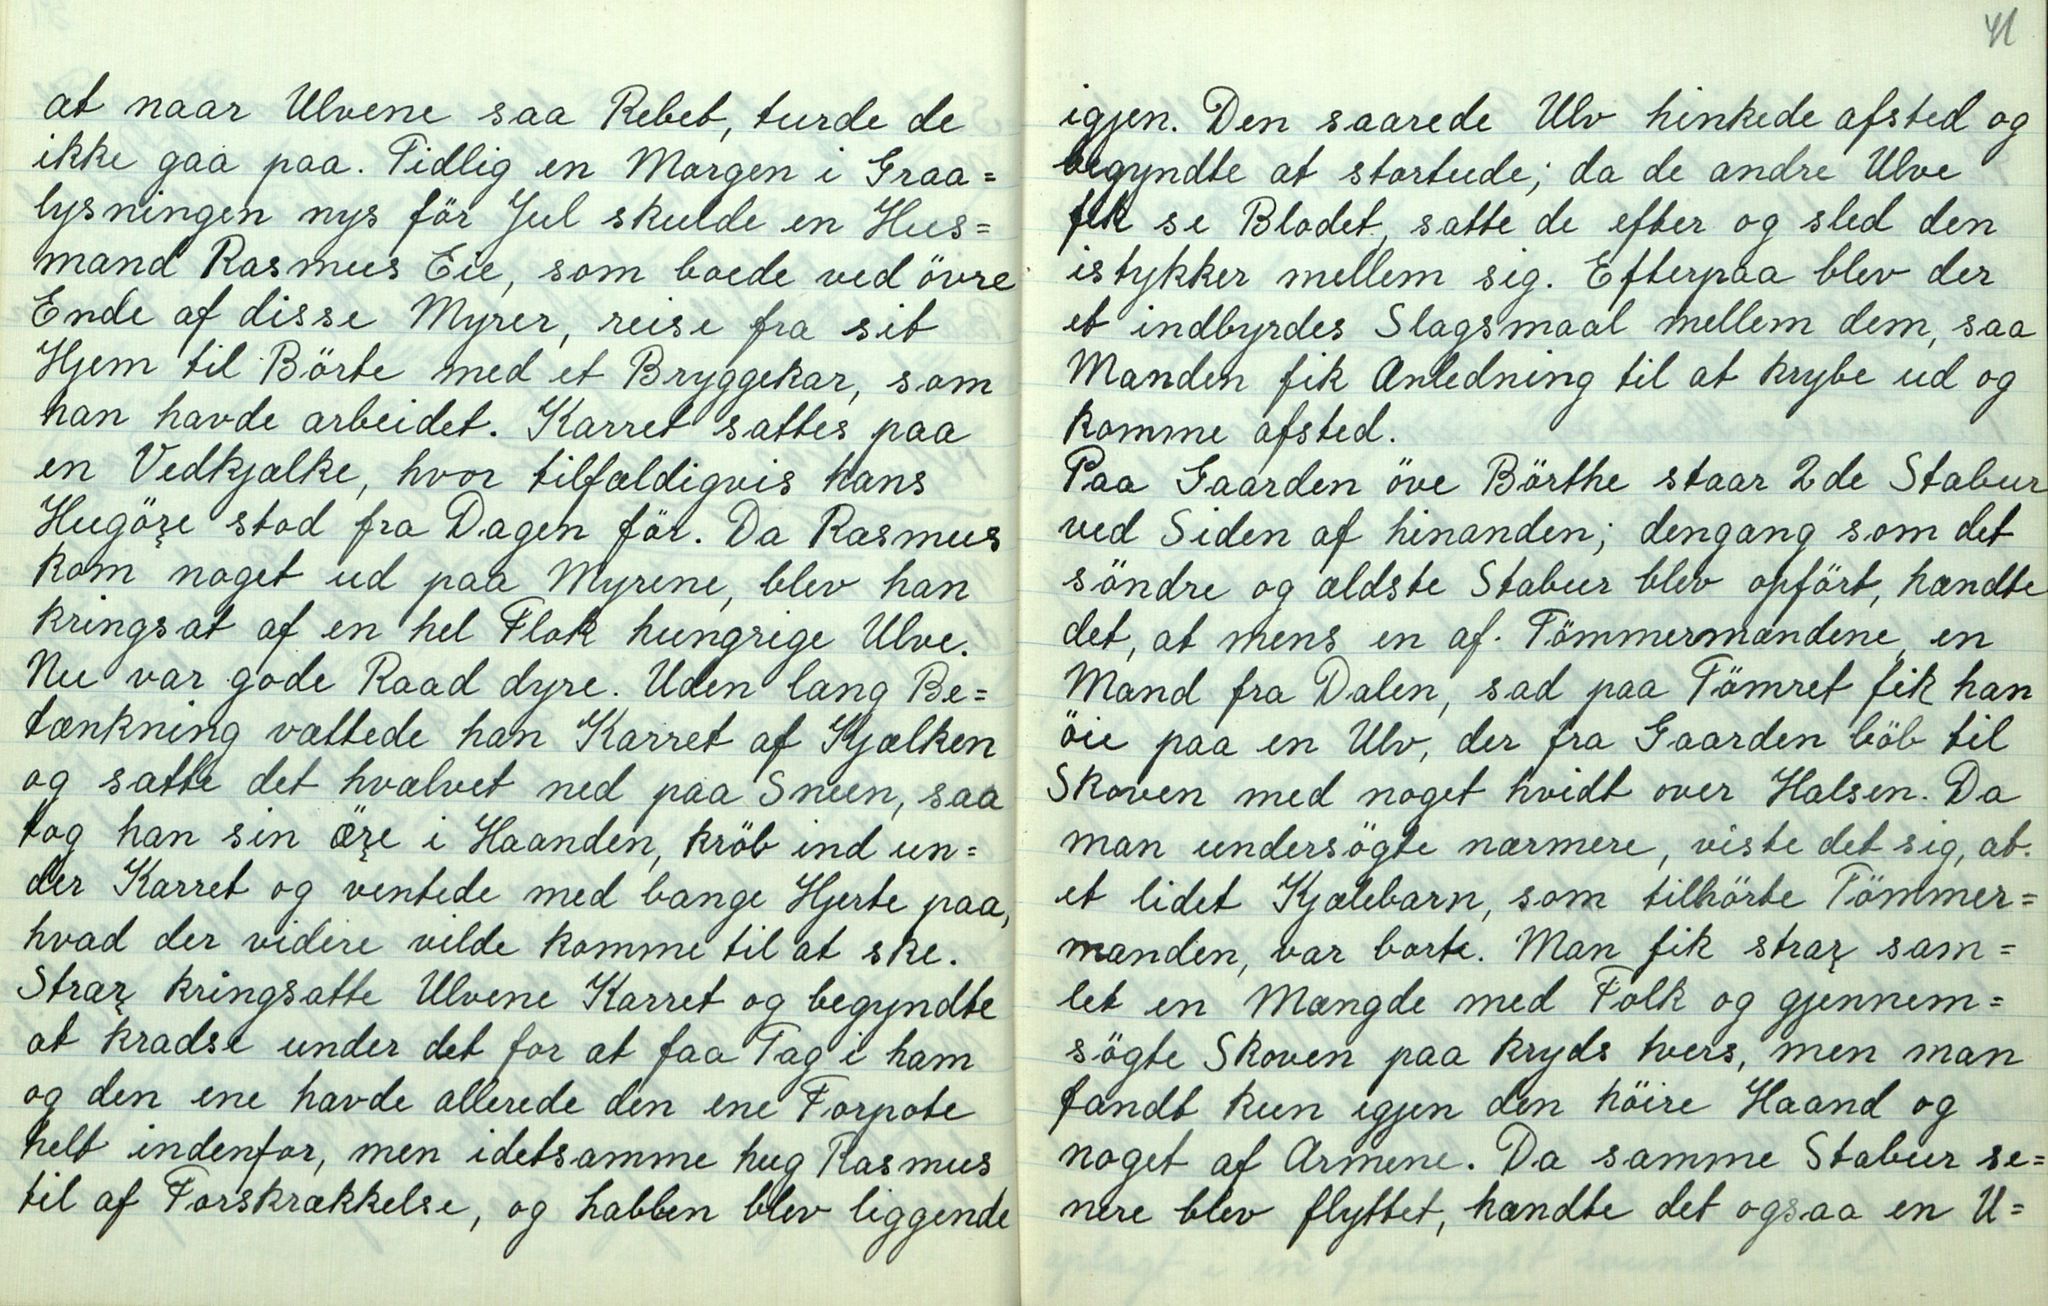 at naar Ulvene saa Rebet, turde de
ikke gaa paa. Tidlig en Morgen i Graa=
lysningen nys för Jul skulde en Hus=
mand Rasmus Eie, som boede ved övre
Ende af disse Myrer, reise fra sit
Hjem til Börte med et Bryggekar, som
han havde arbeidet. Karret sattes paa
en Vedkjælke, hvor tilfældigvis hans
Hugöxe stod fra Dagen för. Da Rasmus
kom noget ud paa Myrene, blev han
kringsat af en hel Flok hungrige Ulve.
Nu var gode Raad dyre. Uden lang Be=
tænkning vættede han Karret af Kjælken
og satte det hvælvet ned paa Sneen, saa
tog han sin öxe i Haanden, kröb ind un=
der Karret og ventede med bange Hjerte paa,
hvad der videre vilde komme til at ske.
Strax kringsatte Ulvene Karret og begyndte
at kradse under det for at faa Tag i ham
og den ene havde allerede den ene Forpote
helt indenfor, men idetsamme hug Rasmus
til af Forskrækkelse, og Labben blev liggende
41
igjen. Den saarede Ulv hinkede afsted og
begyndte at stortude; da de andre Ulve
fik se Blodet, satte de efter og sled den
istykker mellem sig. Efterpaa blev der
et indbyrdes Slagsmaal mellem dem, saa
Manden fik Anledning til at krybe ud og
komme afsted.
Paa Gaarden öve Börthe staar 2de Stabur
ved Siden af hinanden; dengang som det
söndre og ældste Stabur blev opfört, hændte
det, at mens en af Tömmermændene, en
Mand fra Dalen, sad paa Tömret fik han
öie paa en Ulv, der fra Gaarden löb til
Skoven med noget hvidt over Halsen. Da
man undersögte nærmere, viste det sig, at
et lidet Kjælebarn, som tilhörte Tömmer=
manden, var borte. Man fik strax sam=
let en Mængde med Folk og gjennem=
sögte Skoven paa kryds tvers, men man
fandt kun igjen den höire Haand og
noget af Armene. Da samme Stabur se=
nere blev flyttet, hændte det ogsaa en U=